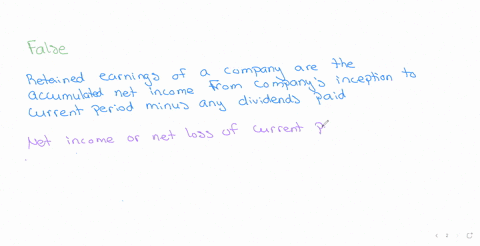 False
Retained earnings of a company are the
accumulated net income from company's inception to
current period minus any dividends paid
Net income or net loss of current p